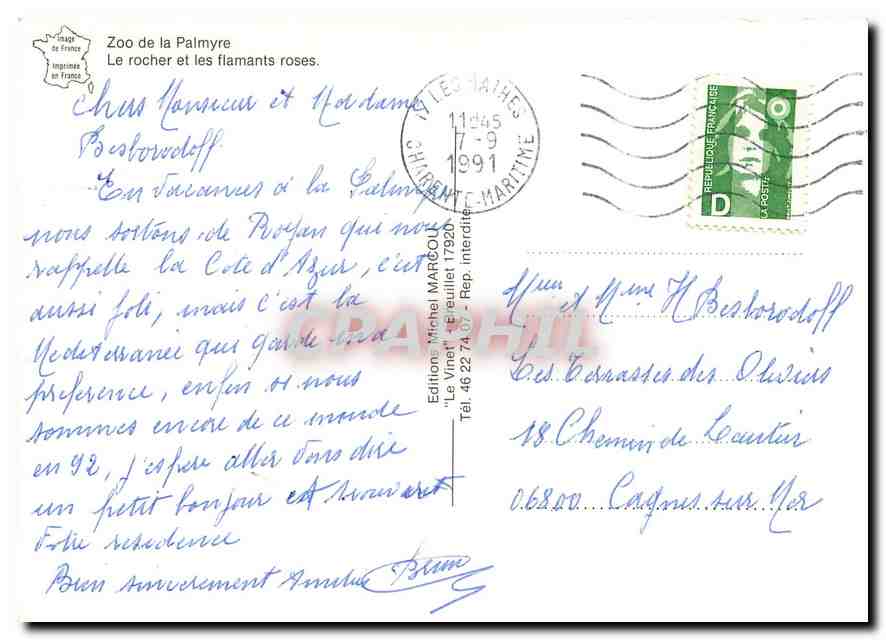 Image
de France
Imprimée
en France
Zoo de la Palmyre
Le rocher et les flamants roses.
Chers Monsieur et Madame
Besborodoff.
En vacances à la Palmyre
nous sortons de Royan qui nous
rappelle la Cote d'Azur, c'est
aussi joli, mais c'est la
Mediterranée qui garde ma
preference, enfin si nous
sommes encore de ce monde
en 92, j'espere aller vous dire
un petit bonjour et
votre residence
Bien sincerement
17 LES MATHES
11H45
7-9
1991
CHARENTE-MARITIME
RÉPUBLIQUE FRANÇAISE
D
LA POSTE
Editions Michel MARCOU
"Le Vinet" - Breuillet 17920
Tél. 46 22 74 07 - Rep. interdite
CPAPHIL
Mr et Mme H Besborodoff
Les Terrasses des Oliviers
18 Chemin de
06800 Cagnes sur Mer